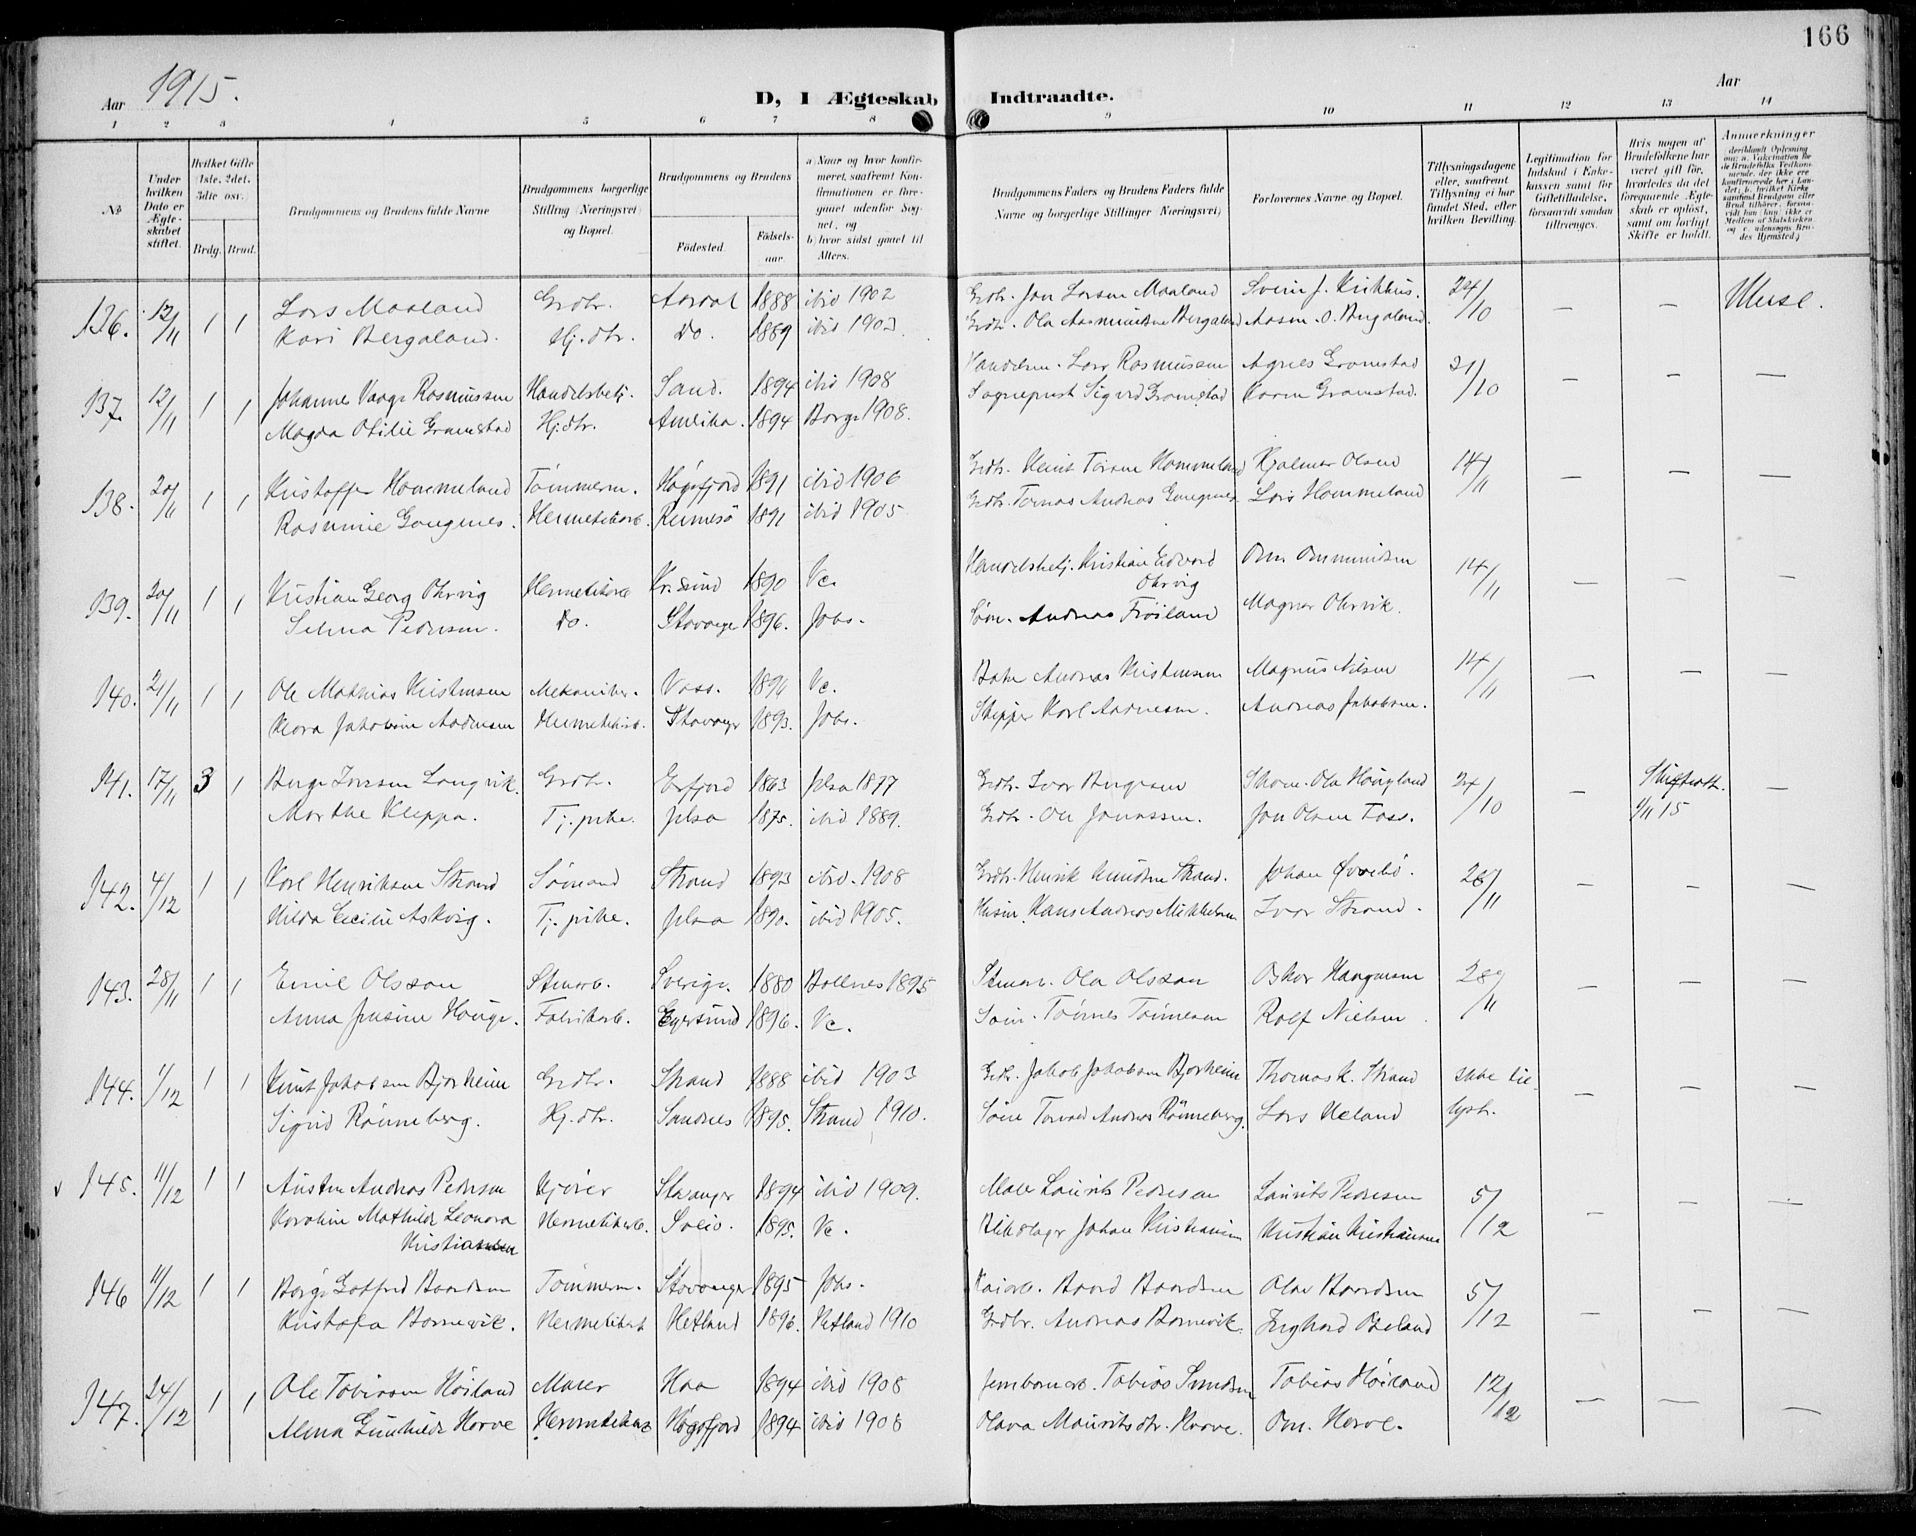 166
Aar 1915.
D, I Ægteskab Indtraadte.
Aar
1 2 3 4 5 6 7 8 9 10 11 12 13 14
No
Under hvilken Dato er Ægteskabet stiftet.
Hvilket Gifte (1ste, 2det, 3die osv.
Brdg. Brud.
Brudgommens og Brudens fulde Navne
Brudgommens borgerlige Stilling (Næringsvei) og Bopæl.
Brudgommens og Brudens
Födested.
Födselsaar.
a) Naar og hvor konfirmeret, saafremt Konfirmationen er foregaaet udenfor Sognet, og
b) hvor sidst gaaet til Alters.
Brudgommens Faders og Brudens Faders fulde Navne og borgerlige Stillinger (Næringsvei)
Forlovernes Navne og Bopæl.
Tillysningsdagene eller, saafremt Tillysning ei har fundet Sted, efter hvilken Bevilling.
Legitimation for Indskud i Enkekassen samt for Giftetilladelse, forsaavidt saadan tiltrænges.
Hvis nogen af Brudefolkene har været gift før, hvorledes da det foregaaende Ægteskab er oplöst, samt om lovligt Skifte er holdt.
Anmerkninger
136. 12/11 1 1 Lars Maaland Grdbr. Aardal 1888 ibid 1902 Grdbr. Jon Larsen Maaland Svein J. Kirkhus. 24/10 — — Muse.
Kari Bergaland. Hj. dtr. Do. 1889 ibid 1903. Grdbr. Ola Aasmundsen Bergaland Aasm. O. Bergaland.
137. 12/11 1 1 Johannes Vaage Rasmussen Handelsbetj. Sand. 1894 ibid 1908 Handelsm. Lars Rasmussen Agnes Gramstad 31/10 — — —
Magda Otilie Gramstad Hj. dtr. Amerika. 1894 Borge 1908. Sogneprest Sigvd Gramstad Karen Gramstad.
138. 20/11 1 1 Kristoffer Hommeland Tømmerm. Høgsfjord 1891 ibid 1906 Grdbr. Knut Torsen Hommeland Hjalmar Olsen 14/11 — — —
Rasmine Gangenes. Hermetikarb. Rennesø 1891 ibid 1905 Grdbr. Tornas Andreas Gangenes Lars Hommeland
139. 20/11 1 1 Kristian Georg Ohrvig Hermetikarb Kr.sund 1890 Vc. Handelsbetj. Kristian Edvard Ohrvig Om. Ommundsen 14/11 — — —
Selma Pedersen. Do. Stavanger 1896. Johs. Søm. Andreas Frøiland Magner Ohrvik.
140. 21/11 1 1 Ole Mathias Kristensen Mekaniker. Voss. 1894 Vc. Andreas Kristensen Magnus Nilsen 14/11 — — —
Klara Jakobine Aadnesen Hermetikarb. Stavanger 1893. Johs. Skipper Karl Aadnesen. Andreas Jakobsen.
141. 17/11 3 1 Berge Iversen Langvik. Grdbr. Erfjord 1863 Jelsa 1877 Grdbr. Ivar Bergesen Skom. Ola Haugland 24/10 — Skifteatt. 4/11 15 —
Marthe Kleppa. Tj. pike. Jelsa 1875. ibid 1889. Grdbr. Ole Jonassen. Jon Olsen Foss.
142. 4/12 1 1 Karl Henriksen Strand Sømand Strand 1893 ibid. 1908 Grdbr. Henrik Knudsen Strand. Johan Øvrebø. 28/11 — — —
Hilda Cecilie Askvig. Tj. pike. Jelsa 1890. ibid 1905. Husm. Hans Andreas Mikkelsen Ivar Strand.
143. 28/11 1 1 Emil Olsson Stenarb. Sverige. 1880 Bollnes 1895 Stenarb. Ola Olsson Oskar Haagensen 28/11 — — —
Anna Josine Hauge. Fabrikarb. Egersund 1896. Vc. Søm. Tønnes Tønnesen Rolf Nielsen
144. 1/12 1 1 Knut Jakobsen Bjørheim Grdbr. Strand 1888 ibid 1903 Grdbr. Jakob Jakobsen Bjørheim Thomas K. Strand — — —
Sigrid Rønneberg. Hj. dtr. Sandnes 1895. Strand 1910. Andreas Rønneberg. Lars Ueland lyst.
v 145. 11/12 1 1 Austin Andreas Pedersen Kjører Stavanger 1894 ibid 1909. Maler Laurits Pedersen Laurits Pedersen 5/12 — — —
Karoline Mathilde Leonora Kristiansen Hermetikarb. 1895. Vc. Blikslager Johan Kristiansen Kristian Kristiansen
146 11/12 1 1 Børge Gotfred Baardsen Tømmerm. Stavanger 1895 Johs. Kaiarb. Baard Baardsen Olav Baardsen 5/12 — — —
Kristofa Bornevik. Hermetikarb Hetland 1896. Hetland 1910 Grdbr. Andreas Bornevik.
147. 24/12 1 1 Ole Tobiasen Høiland Murer Haa 1894 ibid 1908 Jernbanearb. Tobias Tobias Høiland 12/12 — — —
Alma Gunhilde Horve Hermetikarb Høgsfjord 1894 ibid 1908 Olava Mauritsdtr. Horve. Om. Horve.